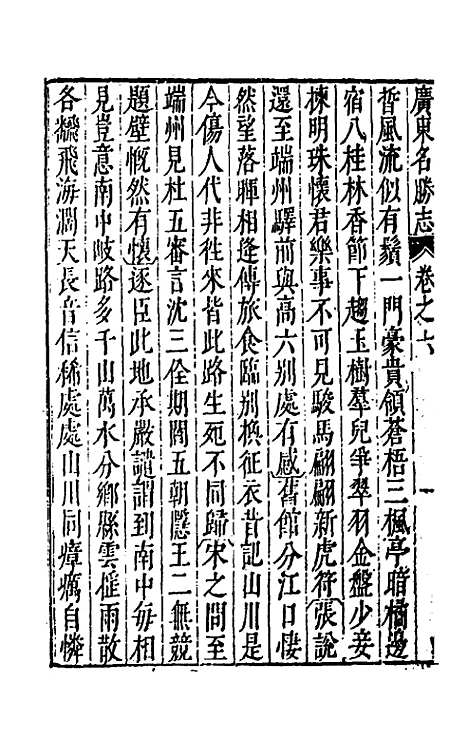 廣東名勝志 卷之六 一
晳風流似有鬚一門豪貴領蒼梧三楓亭暗橘邊
宿八桂林香節下趨玉樹羣兒爭翠羽金盤少妾
揀明珠懷君樂事不可見駿馬翩翩新虎符張說
還至端州驛前與高六别處有感舊館分江口悽
然望落暉相逢傳旅食臨别換征衣昔記山川是
今傷人代非徃來皆此路生死不同歸宋之問至
端州見杜五審言沈三佺期閻五朝隱王二無競
題壁慨然有懷逐臣此地承嚴譴謂到南中每相
見豈意南中岐路多千山萬水分鄉縣雲徭雨散
各飜飛海濶天長音信稀處處山川同瘴癘自憐